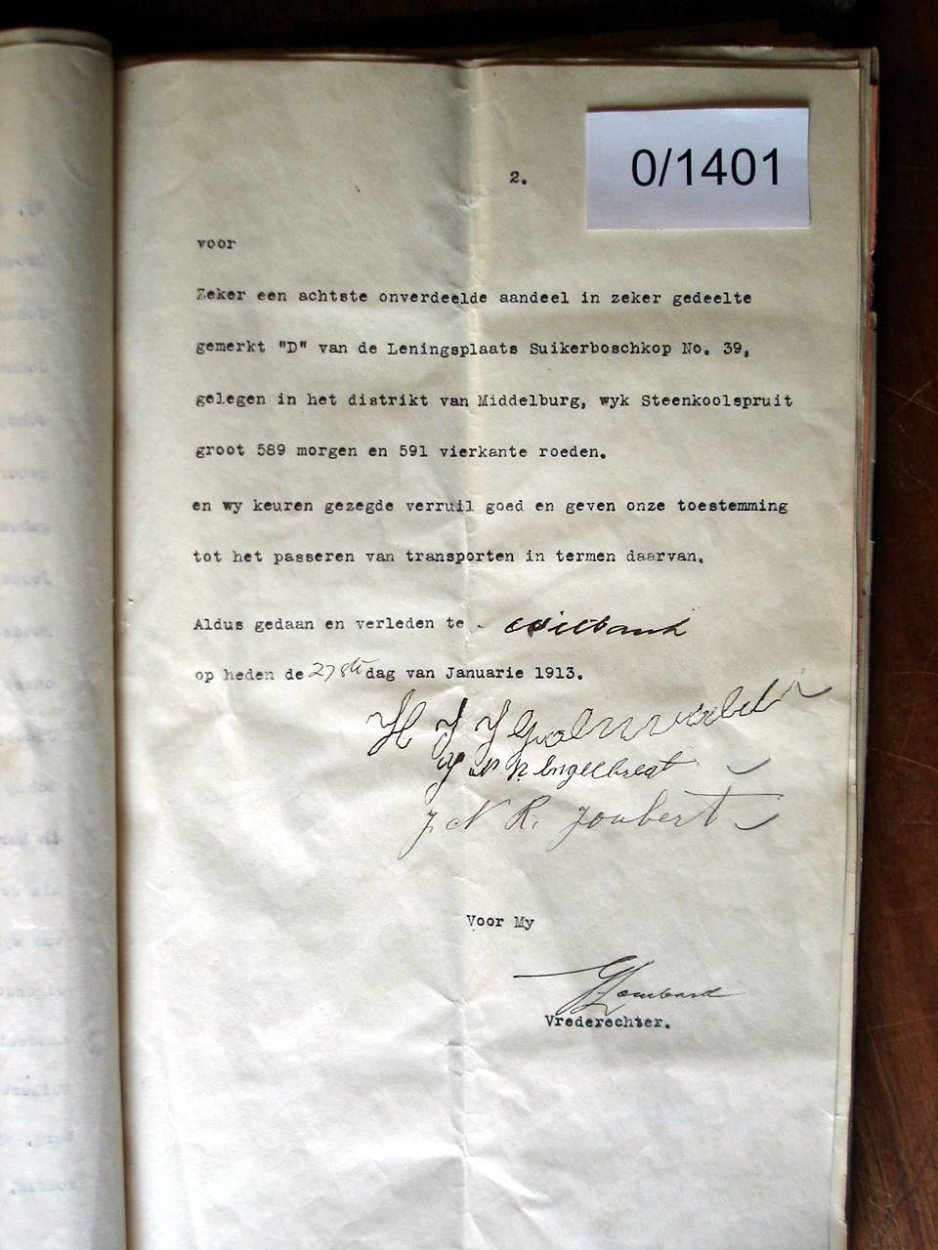 0/1401
2.
voor
Zeker een achtste onverdeelde aandeel in zeker gedeelte
gemerkt "D" van de Leningsplaats Suikerboschkop No. 39,
gelegen in het distrikt van Middelburg, wyk Steenkoolspruit
groot 589 morgen en 591 vierkante roeden.
en wy keuren gezegde verruil goed en geven onze toestemming
tot het passeren van transporten in termen daarvan.
Aldus gedaan en verleden te Witbank
op heden de 27ste dag van Januarie 1913.
H J J
Engelbregt
J. N R. Joubert
Voor My
Lombard
Vrederechter.